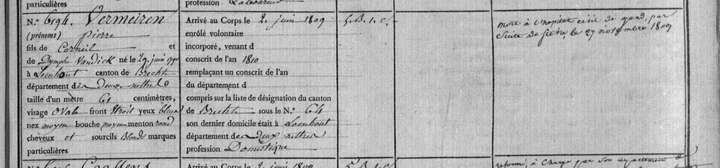 particulières
profession
N.º 6194. Vermeiren
(prénoms) pierre
fils de Corneil et
de Dymph Vandick né le 29 juin 1790
à Loenhout canton de Brecht
département des deux nethes
taille d'un mètre 61 centimètres,
visage Oval front étroit yeux bleus
nez moyen bouche moyen menton rond
cheveux et sourcils Blond marques
particulières
Arrivé au Corps le 2 juin 1809
enrôlé volontaire
incorporé, venant d
conscrit de l'an 1810
remplaçant un conscrit de l'an
du département d
compris sur la liste de désignation du canton
de Brecht sous le N.º 64
son dernier domicile était à Loenhout
département des deux nethes
profession Domestique
5. B. 1. C.
mort à l'hopital civil de gand, par
Suite de fievre, le 27 novembre 1809
Arrivé au Corps le 2 juin 1809